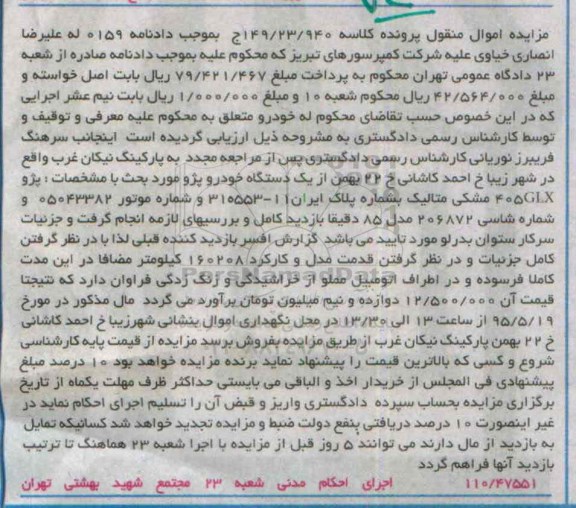 مزایده اموال منقول پرونده کلاسه ۱۴۹/۲۳/۹۴۰ج بموجب دادنامه ۰۱۵۹ له علیرضا
انصاری خیاوی علیه شرکت کمپرسورهای تبریز که محکوم علیه بموجب دادنامه صادره از شعبه
۲۳ دادگاه عمومی تهران محکوم به پرداخت مبلغ ۷۹/۴۲۱/۴۶۷ ریال بابت اصل خواسته و
مبلغ ۴۲/۵۶۴/۰۰۰ ریال محکوم شعبه ۱۰ و مبلغ ۱/۰۰۰/۰۰۰ ریال بابت نیم عشر اجرایی
که در این خصوص حسب تقاضای محکوم له خودرو متعلق به محکوم علیه معرفی و توقیف و
توسط کارشناس رسمی دادگستری به مشروحه ذیل ارزیابی گردیده است اینجانب سرهنگ
فریبرز نوریانی کارشناس رسمی دادگستری پس از مراجعه مجدد به پارکینگ نیکان غرب واقع
در شهر زیبا خ احمد کاشانی خ ۲۲ بهمن از یک دستگاه خودرو پژو مورد بحث با مشخصات : پژو
۴۰۵GLX مشکی متالیک بشماره پلاک ایران۱۱-۳۱۰۵۵۳ و شماره موتور ۰۵۰۴۳۳۸۲ و
شماره شاسی ۲۰۶۸۷۲ مدل ۸۵ دقیقا بازدید کامل و بررسیهای لازمه انجام گرفت و جزئیات
سرکار ستوان بدرلو مورد تایید می باشد گزارش افسر بازدید کننده قبلی لذا با در نظر گرفتن
کامل جزئیات و در نظر گرفتن قدمت مدل و کارکرد ۱۶۰۲۰۸ کیلومتر مضافا در این مدت
کاملا فرسوده و در اطراف اتومبیل مملو از خراشیدگی و زنگ زدگی فراوان دارد که نتیجتا
قیمت آن ۱۲/۵۰۰/۰۰۰ دوازده و نیم میلیون تومان برآورد می گردد مال مذکور در مورخ
۹۵/۵/۱۹ از ساعت ۱۳ الی ۱۳/۳۰ در محل نگهداری اموال بنشانی شهرزیبا خ احمد کاشانی
خ ۲۲ بهمن پارکینگ نیکان غرب از طریق مزایده بفروش برسد مزایده از قیمت پایه کارشناسی
شروع و کسی که بالاترین قیمت را پیشنهاد نماید برنده مزایده خواهد بود ۱۰ درصد مبلغ
پیشنهادی فی المجلس از خریدار اخذ و الباقی می بایستی حداکثر ظرف مهلت یکماه از تاریخ
برگزاری مزایده بحساب سپرده دادگستری واریز و قبض آن را تسلیم اجرای احکام نماید در
غیر اینصورت ۱۰ درصد دریافتی بنفع دولت ضبط و مزایده تجدید خواهد شد کسانیکه تمایل
به بازدید از مال دارند می توانند ۵ روز قبل از مزایده با اجرا شعبه ۲۳ هماهنگ تا ترتیب
بازدید آنها فراهم گردد
۱۱۰/۴۷۵۵۱ اجرای احکام مدنی شعبه ۲۳ مجتمع شهید بهشتی تهران
ParsNamadData